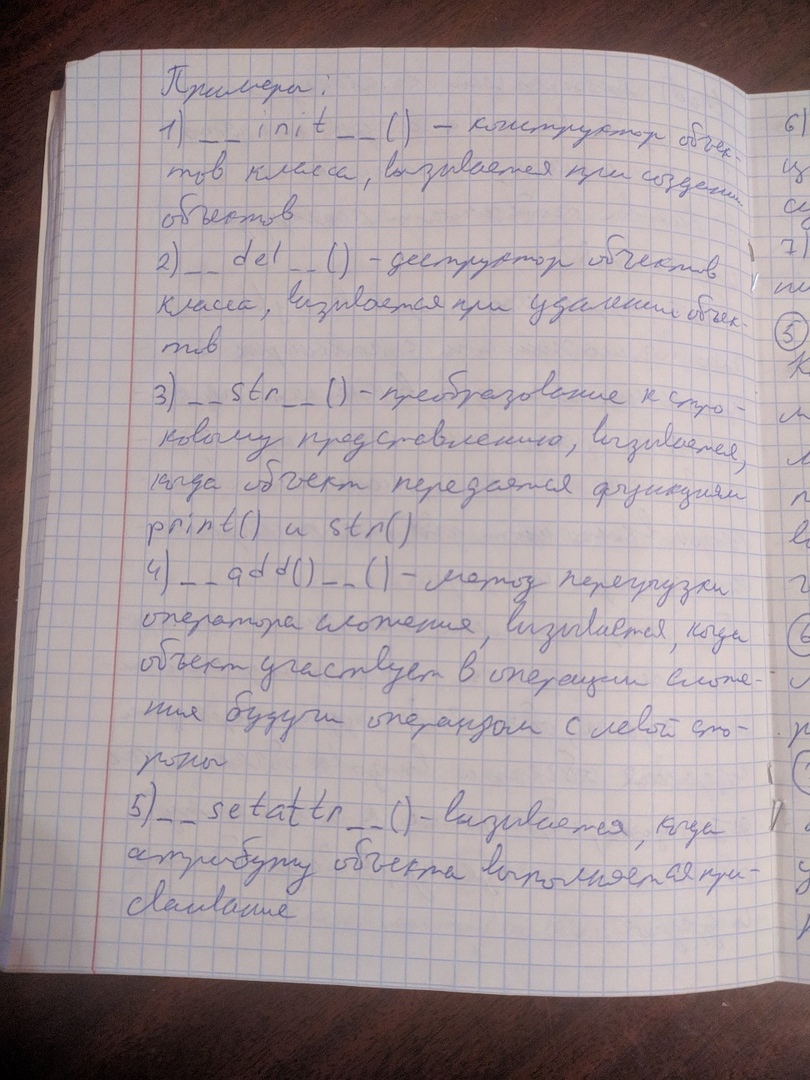 Примеры:
1) __init__() – конструктор объек-
тов класса, вызывается при создании
объектов
2) __del__() – деструктор объектов
класса, вызывается при удалении объек-
тов
3) __str__() – преобразование к стро-
ковому представлению, вызывается,
когда объект передается функциям
print() и str()
4) __add()__() – метод перегрузки
оператора сложения, вызывается, когда
объект участвует в операции сложе-
ния будучи операндом с левой сто-
роны
5) __setattr__() – вызывается, когда
атрибуту объекта выполняется при-
сваивание
6)
7)
5
6